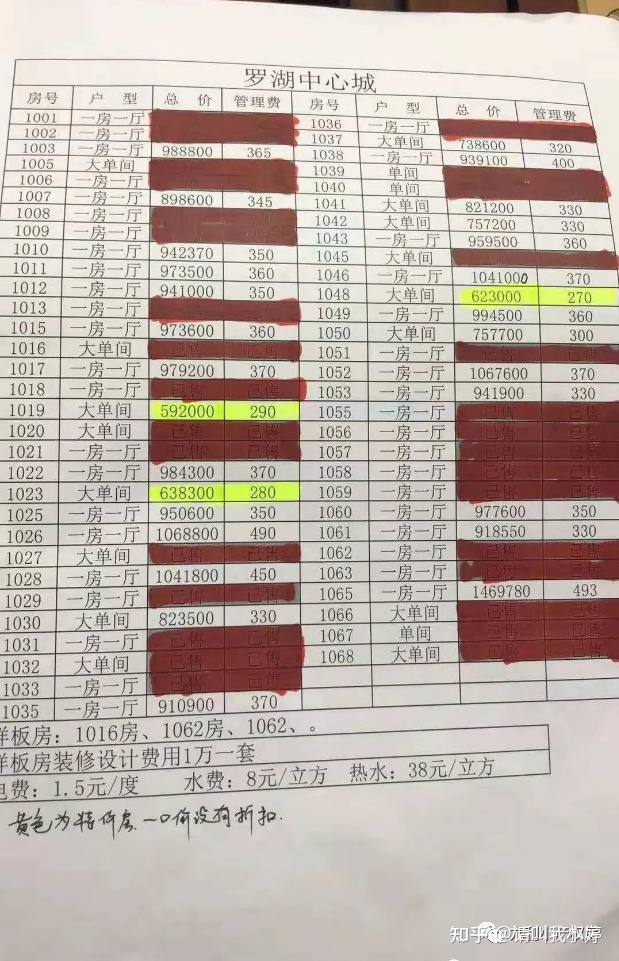 罗湖中心城
房号 户 型 总 价 管理费 房号 户 型 总 价 管理费
1001 一房一厅 1036 一房一厅
1002 一房一厅 1037 大单间 738600 320
1003 一房一厅 988800 365 1038 一房一厅 939100 400
1005 大单间 1039 单间
1006 一房一厅 1040 单间
1007 一房一厅 898600 345 1041 大单间 821200 330
1008 一房一厅 1042 大单间 757200 330
1009 一房一厅 1043 一房一厅 959500 360
1010 一房一厅 942370 350 1045 大单间
1011 一房一厅 973500 360 1046 一房一厅 1041000 370
1012 一房一厅 941000 350 1048 大单间 623000 270
1013 一房一厅 已售 已售 1049 一房一厅 994500 360
1015 一房一厅 973600 360 1050 大单间 757700 300
1016 大单间 已售 已售 1051 一房一厅 已售 已售
1017 一房一厅 979200 370 1052 一房一厅 1067600 370
1018 一房一厅 已售 已售 1053 一房一厅 941900 330
1019 大单间 592000 290 1055 一房一厅 已售 已售
1020 大单间 已售 已售 1056 一房一厅 已售 已售
1021 一房一厅 已售 已售 1057 一房一厅 已售 已售
1022 一房一厅 984300 370 1058 一房一厅 已售 已售
1023 大单间 638300 280 1059 一房一厅 已售 已售
1025 一房一厅 950600 350 1060 一房一厅 977600 350
1026 一房一厅 1068800 490 1061 一房一厅 918550 330
1027 大单间 已售 已售 1062 一房一厅 已售 已售
1028 一房一厅 1041800 450 1063 一房一厅 已售 已售
1029 一房一厅 已售 已售 1065 一房一厅 1469780 493
1030 大单间 823500 330 1066 大单间 已售 已售
1031 一房一厅 已售 已售 1067 单间 已售 已售
1032 大单间 已售 已售 1068 大单间 已售 已售
1033 一房一厅 已售 已售
1035 一房一厅 910900 370
样板房：1016房、1062房、1062、。
样板房装修设计费用1万一套
电费：1.5元/度 水费：8元/立方 热水：38元/立方
黄色为特价房 一口价没有折扣.
知乎